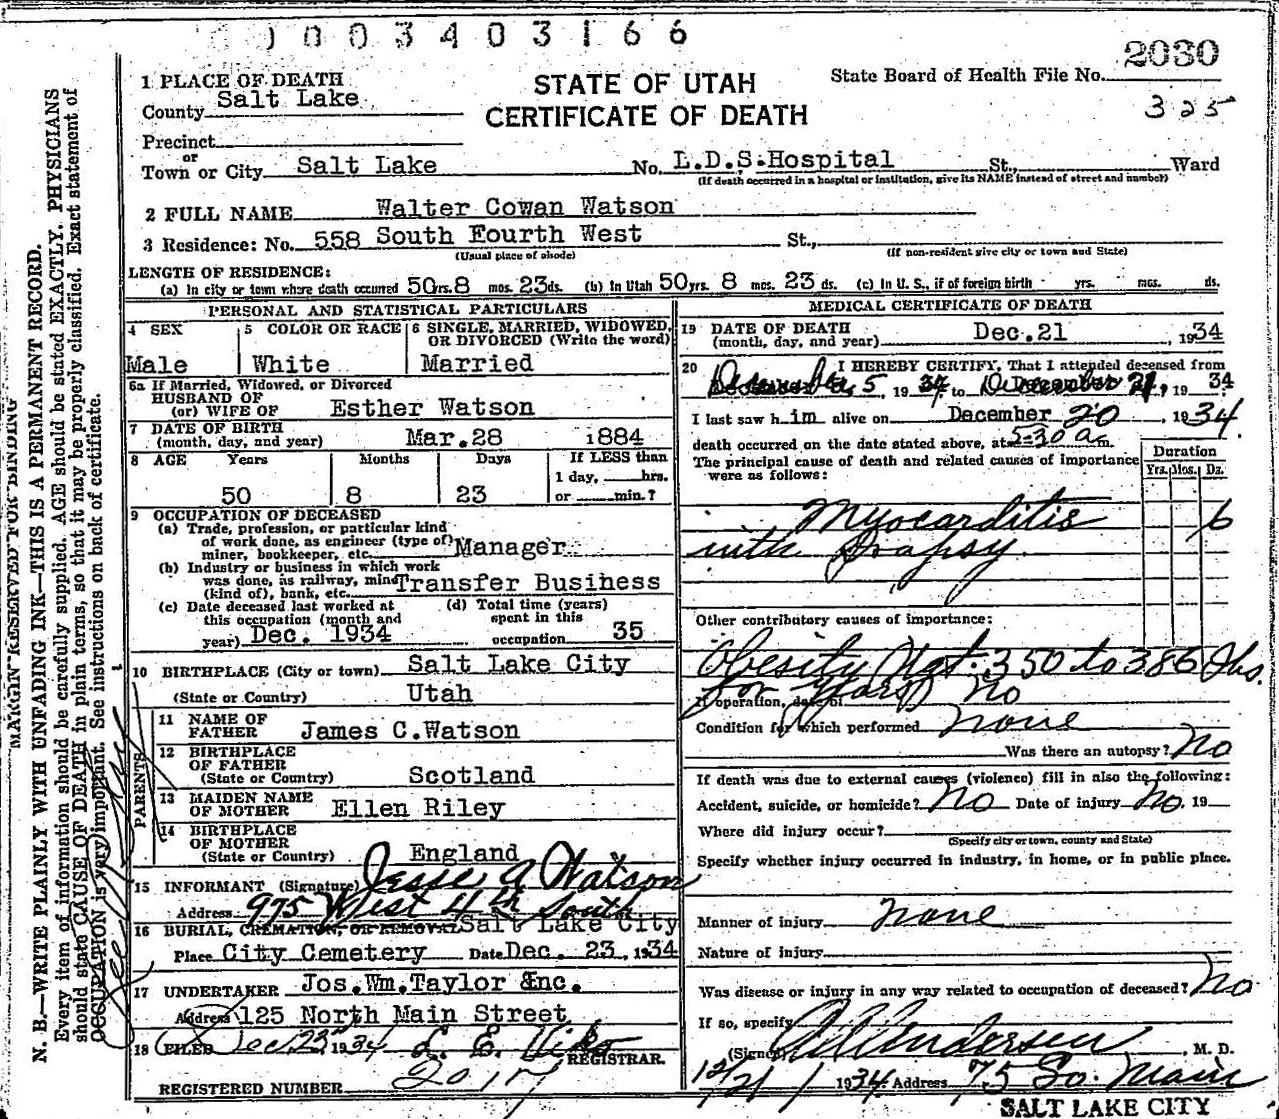 1003403166
2030
STATE OF UTAH
CERTIFICATE OF DEATH
State Board of Health File No.
325
1 PLACE OF DEATH
County Salt Lake
Precinct
or
Town or City Salt Lake No. L.D.S. Hospital St., Ward
(If death occurred in a hospital or institution, give its NAME instead of street and number)
2 FULL NAME Walter Cowan Watson
3 Residence: No. 558 South Fourth West St.,
(Usual place of abode) (If non-resident give city or town and State)
LENGTH OF RESIDENCE:
(a) In city or town where death occurred 50 yrs. 8 mos. 23 ds. (b) In Utah 50 yrs. 8 mos. 23 ds. (c) In U. S., if of foreign birth yrs. mos. ds.
PERSONAL AND STATISTICAL PARTICULARS
4 SEX 5 COLOR OR RACE 6 SINGLE, MARRIED, WIDOWED, OR DIVORCED (Write the word)
Male White Married
6a If Married, Widowed, or Divorced
HUSBAND OF
(or) WIFE OF Esther Watson
7 DATE OF BIRTH
(month, day, and year) Mar. 28 1884
8 AGE Years Months Days If LESS than
1 day, hrs.
50 8 23 or min.?
9 OCCUPATION OF DECEASED
(a) Trade, profession, or particular kind
of work done, as engineer (type of)
miner, bookkeeper, etc. Manager
(b) Industry or business in which work
was done, as railway, mine
(kind of), bank, etc. Transfer Business
(c) Date deceased last worked at
this occupation (month and
year) Dec. 1934
(d) Total time (years)
spent in this
occupation 35
10 BIRTHPLACE (City or town) Salt Lake City
(State or Country) Utah
PARENTS
11 NAME OF
FATHER James C. Watson
12 BIRTHPLACE
OF FATHER
(State or Country) Scotland
13 MAIDEN NAME
OF MOTHER Ellen Riley
14 BIRTHPLACE
OF MOTHER
(State or Country) England
15 INFORMANT (Signature) Jesse A Watson
Address 975 West 4th South
16 BURIAL, CREMATION, OR REMOVAL Salt Lake City
Place City Cemetery Date Dec. 23, 1934
17 UNDERTAKER Jos. Wm. Taylor Inc.
Address 125 North Main Street
18 FILED Dec 23 1934
REGISTRAR.
REGISTERED NUMBER 2017
MEDICAL CERTIFICATE OF DEATH
19 DATE OF DEATH
(month, day, and year) Dec. 21, 1934
20 I HEREBY CERTIFY, That I attended deceased from
December 5, 1934, to December 21, 1934
I last saw him alive on December 20 1934.
death occurred on the date stated above, at 5-30 am.
The principal cause of death and related causes of importance
were as follows:
Duration
Yrs. Mos. Ds.
Myocarditis 6
with Dropsy.
Other contributory causes of importance:
Obesity Wgt. 350 to 386 lbs.
for years
If operation, date of No
Condition for which performed none
Was there an autopsy? No
If death was due to external causes (violence) fill in also the following:
Accident, suicide, or homicide? No Date of injury No. 19
Where did injury occur?
(Specify city or town, county and State)
Specify whether injury occurred in industry, in home, or in public place.
Manner of injury none
Nature of injury
Was disease or injury in any way related to occupation of deceased? No
If so, specify
(Signed) Andersen, M. D.
12/21/1934 Address 75 So. Main
SALT LAKE CITY
MARGIN RESERVED FOR BINDING
N. B.—WRITE PLAINLY WITH UNFADING INK—THIS IS A PERMANENT RECORD.
Every item of information should be carefully supplied. AGE should be stated EXACTLY. PHYSICIANS
should state CAUSE OF DEATH in plain terms, so that it may be properly classified. Exact statement of
OCCUPATION is very important. See instructions on back of certificate.